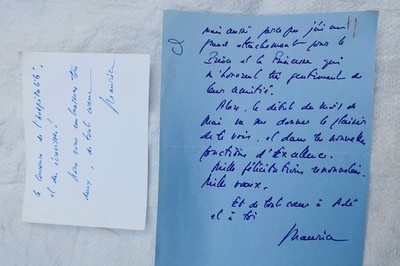 le concours de l'hospitalité
et du sourire !
Nous vous embrassons tous
deux, de tout cœur
Maurice
2
mais aussi parce que j'ai un
grand attachement pour le
Prince et la Princesse qui
m'honorent très gentiment de
leur amitié.
Alors, le début du mois de
Mai va me donner le plaisir
de te voir, et dans tes nouvelles
fonctions d'Excellence.
Mille félicitations renouvelées.
Mille vœux.
Et de tout cœur à
et à toi
Maurice